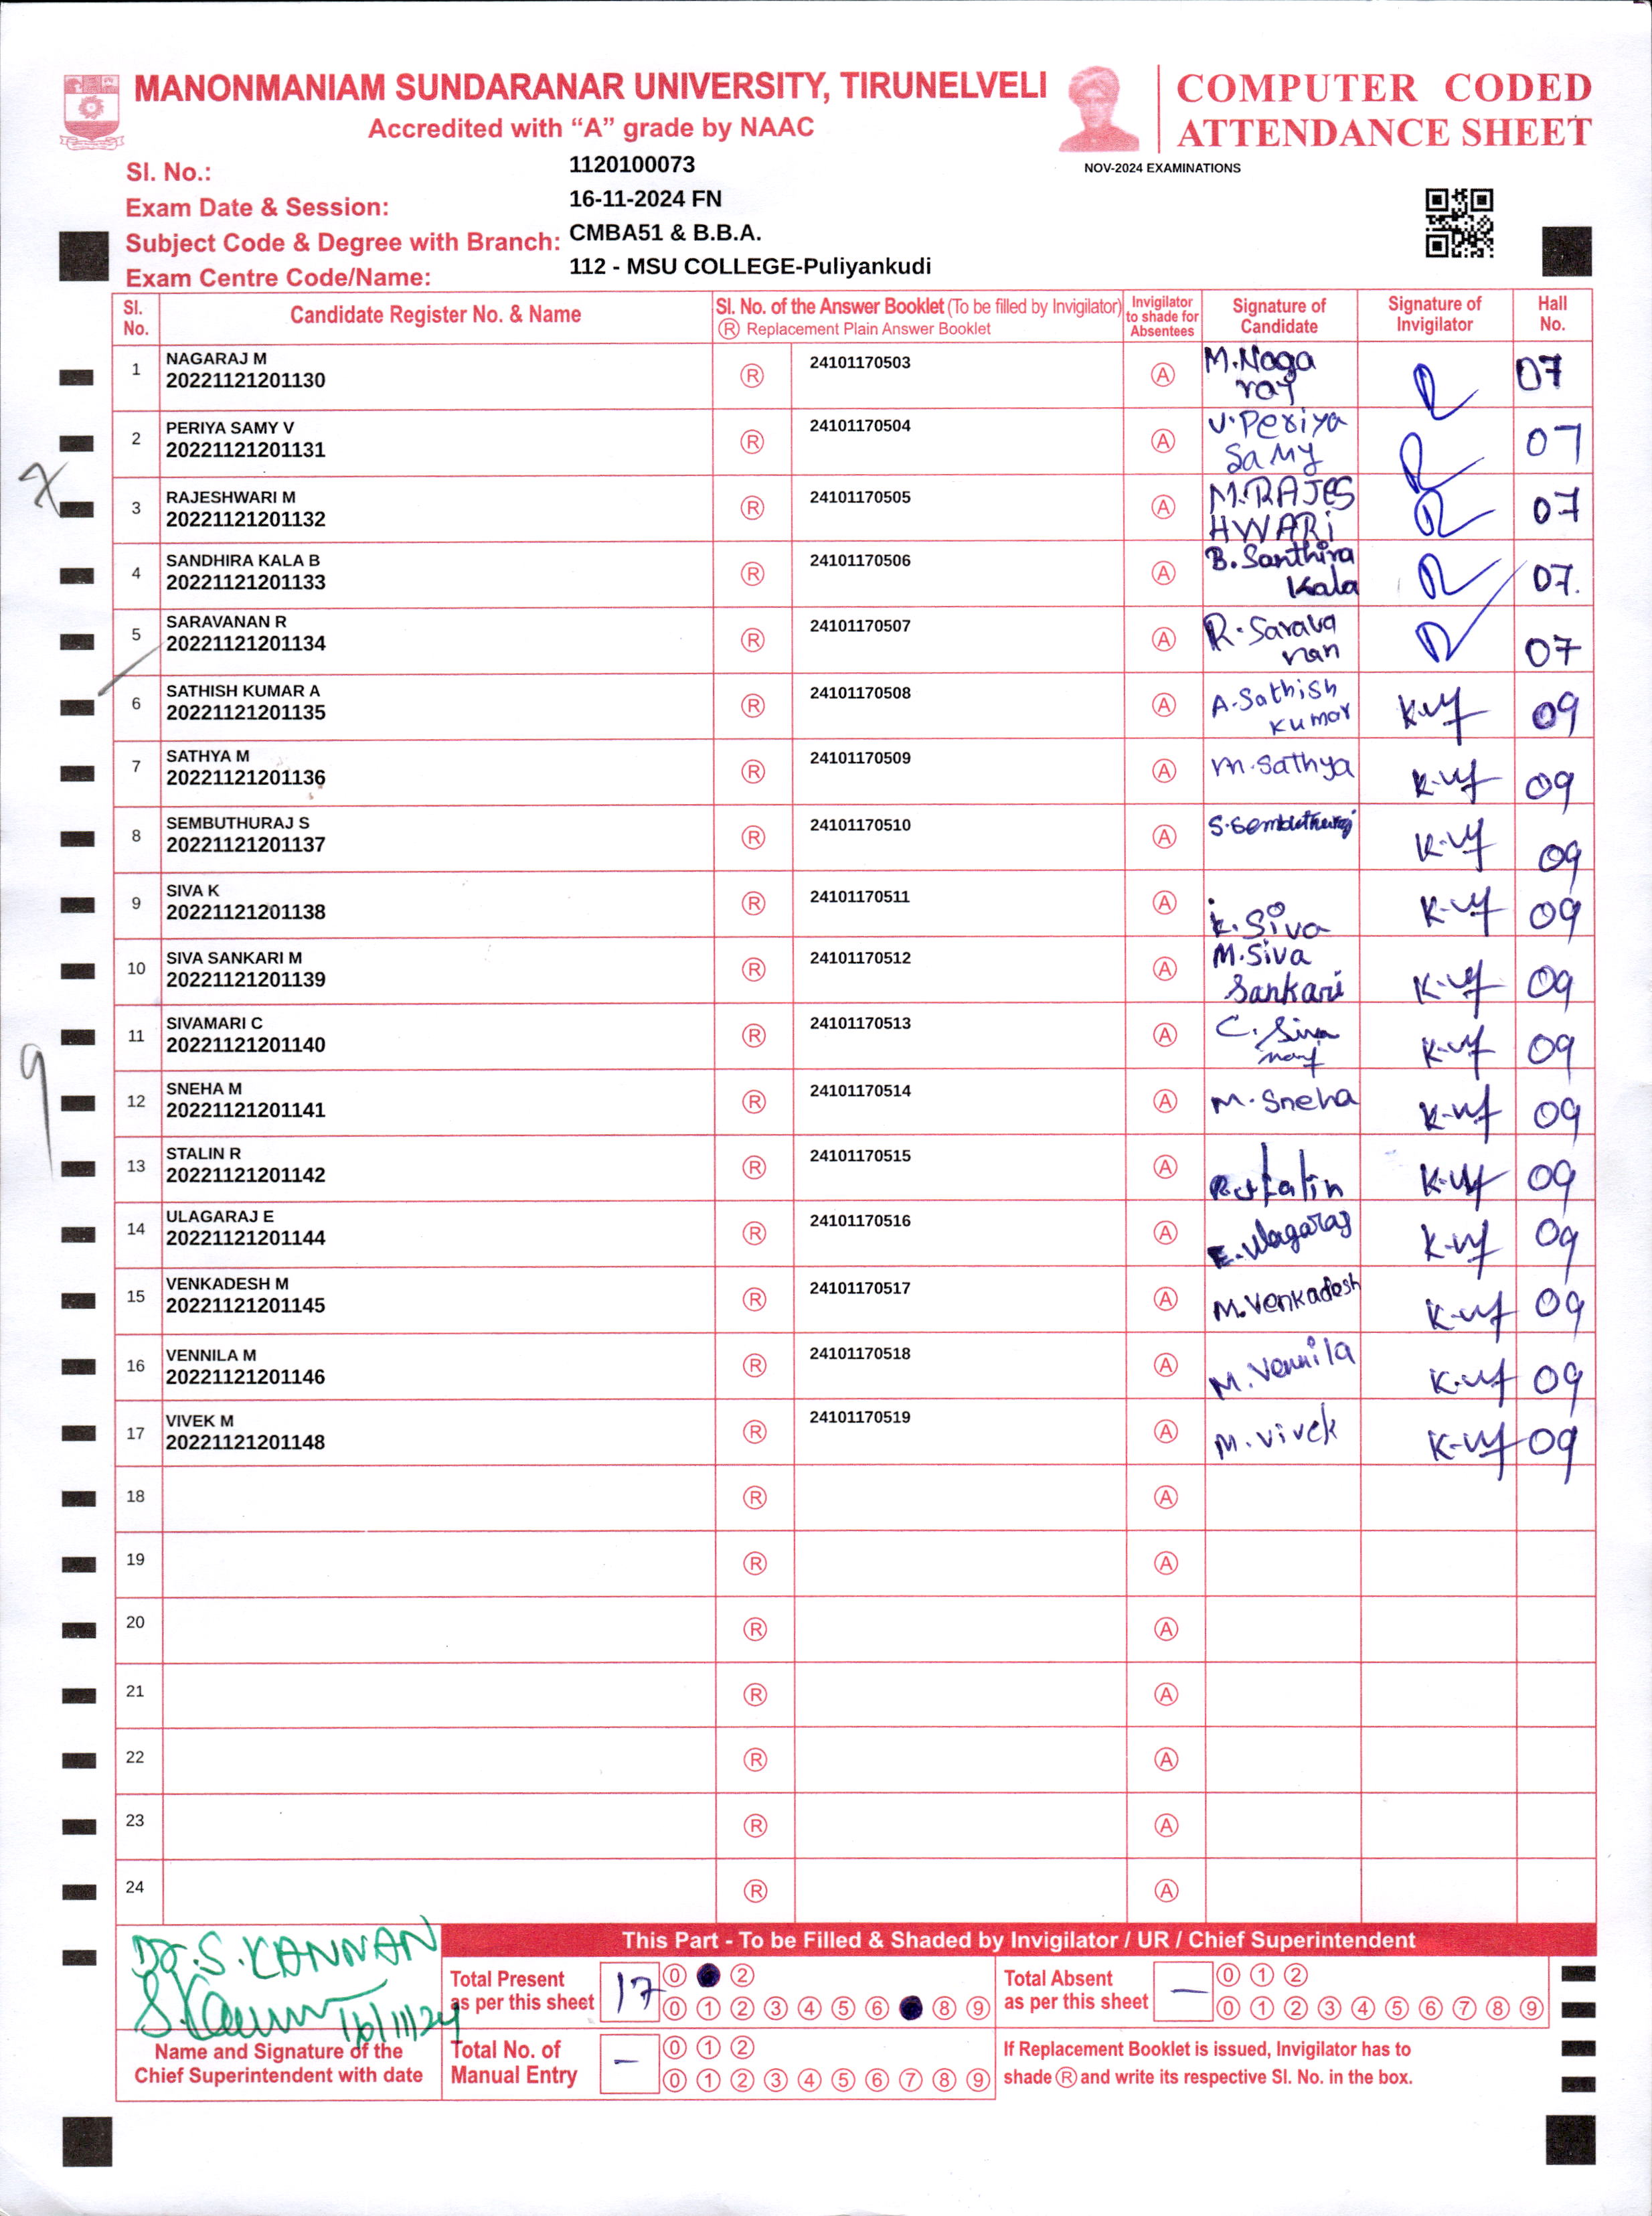 MANONMANIAM SUNDARANAR UNIVERSITY, TIRUNELVELI
Accredited with “A” grade by NAAC
COMPUTER CODED
ATTENDANCE SHEET
NOV-2024 EXAMINATIONS
Sl. No.: 1120100073
Exam Date & Session: 16-11-2024 FN
Subject Code & Degree with Branch: CMBA51 & B.B.A.
Exam Centre Code/Name: 112 - MSU COLLEGE-Puliyankudi
Sl. No. Candidate Register No. & Name Sl. No. of the Answer Booklet (To be filled by Invigilator) Ⓡ Replacement Plain Answer Booklet Invigilator to shade for Absentees Signature of Candidate Signature of Invigilator Hall No.
1 NAGARAJ M 20221121201130 Ⓡ 24101170503 Ⓐ M.Naga raj R 07
2 PERIYA SAMY V 20221121201131 Ⓡ 24101170504 Ⓐ V.Periya Samy R 07
3 RAJESHWARI M 20221121201132 Ⓡ 24101170505 Ⓐ M.RAJES HWARi R 07
4 SANDHIRA KALA B 20221121201133 Ⓡ 24101170506 Ⓐ B.Santhira Kala R 07.
5 SARAVANAN R 20221121201134 Ⓡ 24101170507 Ⓐ R.Sarava nan R 07
6 SATHISH KUMAR A 20221121201135 Ⓡ 24101170508 Ⓐ A.Sathish Kumar 09
7 SATHYA M 20221121201136 Ⓡ 24101170509 Ⓐ M.Sathya 09
8 SEMBUTHURAJ S 20221121201137 Ⓡ 24101170510 Ⓐ S.Sembuthuraj 09
9 SIVA K 20221121201138 Ⓡ 24101170511 Ⓐ K.Siva 09
10 SIVA SANKARI M 20221121201139 Ⓡ 24101170512 Ⓐ M.Siva Sankari 09
11 SIVAMARI C 20221121201140 Ⓡ 24101170513 Ⓐ C.Siva mari 09
12 SNEHA M 20221121201141 Ⓡ 24101170514 Ⓐ M.Sneha 09
13 STALIN R 20221121201142 Ⓡ 24101170515 Ⓐ R.stalin 09
14 ULAGARAJ E 20221121201144 Ⓡ 24101170516 Ⓐ E.Ulagaraj 09
15 VENKADESH M 20221121201145 Ⓡ 24101170517 Ⓐ M.Venkadesh 09
16 VENNILA M 20221121201146 Ⓡ 24101170518 Ⓐ M.Vennila 09
17 VIVEK M 20221121201148 Ⓡ 24101170519 Ⓐ M.Vivek 09
18 Ⓡ Ⓐ
19 Ⓡ Ⓐ
20 Ⓡ Ⓐ
21 Ⓡ Ⓐ
22 Ⓡ Ⓐ
23 Ⓡ Ⓐ
24 Ⓡ Ⓐ
7
9
This Part - To be Filled & Shaded by Invigilator / UR / Chief Superintendent
Dr.S.KANNAN
S.Kannan 16/11/24
Name and Signature of the
Chief Superintendent with date
Total Present
as per this sheet
17
0 2
0 1 2 3 4 5 6 8 9
Total Absent
as per this sheet
—
0 1 2
0 1 2 3 4 5 6 7 8 9
Total No. of
Manual Entry
—
0 1 2
0 1 2 3 4 5 6 7 8 9
If Replacement Booklet is issued, Invigilator has to
shade Ⓡ and write its respective Sl. No. in the box.